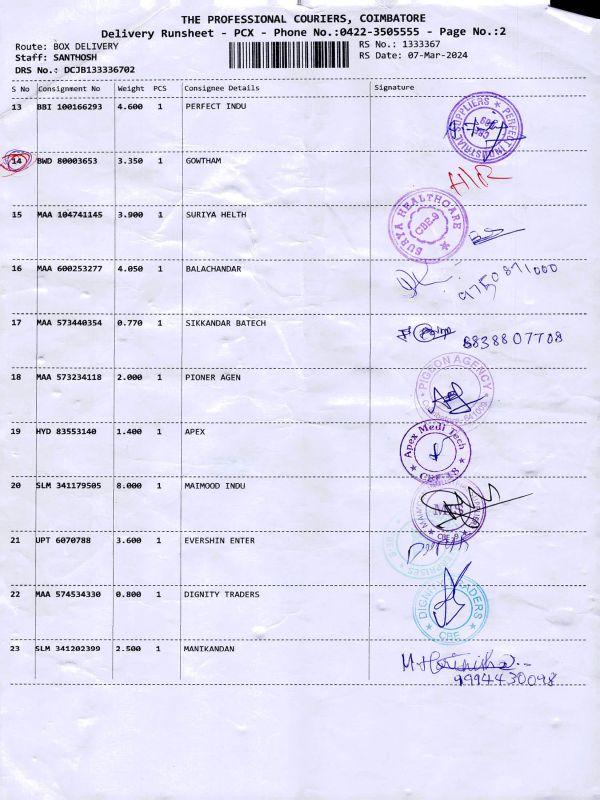 THE PROFESSIONAL COURIERS, COIMBATORE
Delivery Runsheet - PCX - Phone No.:0422-3505555 - Page No.:2
Route: BOX DELIVERY
RS No.: 1333367
Staff: SANTHOSH
RS Date: 07-Mar-2024
DRS No.: DCJB133336702
S No Consignment No Weight PCS Consignee Details Signature
13 BBI 100166293 4.600 1 PERFECT INDU
PERFECT INDUSTRIAL SUPPLIERS
14 BWD 80003653 3.350 1 GOWTHAM
15 MAA 104741145 3.900 1 SURIYA HELTH
SURYA HEALTHCARE
CBE-9
16 MAA 600253277 4.050 1 BALACHANDAR
9750871000
17 MAA 573440354 0.770 1 SIKKANDAR BATECH
8838807708
18 MAA 573234118 2.000 1 PIONER AGEN
PIGEON AGENCY
19 HYD 83553140 1.400 1 APEX
Apex Medi Tech
CBE-18
20 SLM 341179505 8.000 1 MAIMOOD INDU
CBE-9
21 UPT 6070788 3.600 1 EVERSHIN ENTER
22 MAA 574534330 0.800 1 DIGNITY TRADERS
DIGNITY TRADERS
CBE
23 SLM 341202399 2.500 1 MANIKANDAN
9994430098